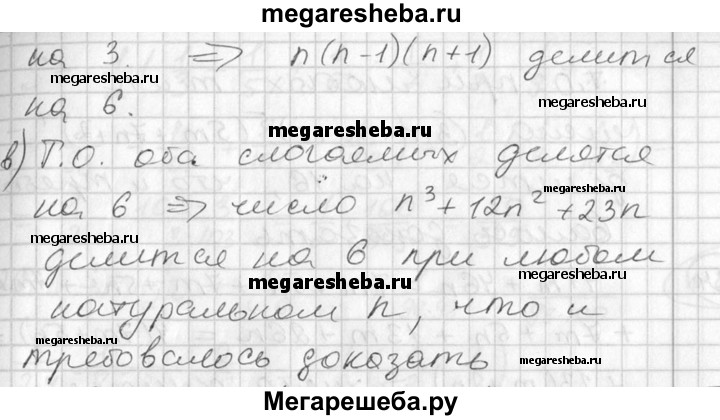 megaresheba.ru
на 3. => n(n-1)(n+1) делится
megaresheba.ru
megaresheba.ru
на 6.
megaresheba.ru
в) Т.О. оба слогаемых делятся
megaresheba.ru
на 6 => число n³+12n²+23n
megaresheba.ru
делится на 6 при любом
megaresheba.ru
натуральном n, что и
megaresheba.ru
megaresheba.ru
требовалось доказать
Мегарешеба.ру